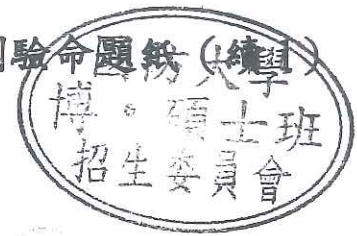 驗命題紙(續1)
大學
博。碩士班
招生委員會